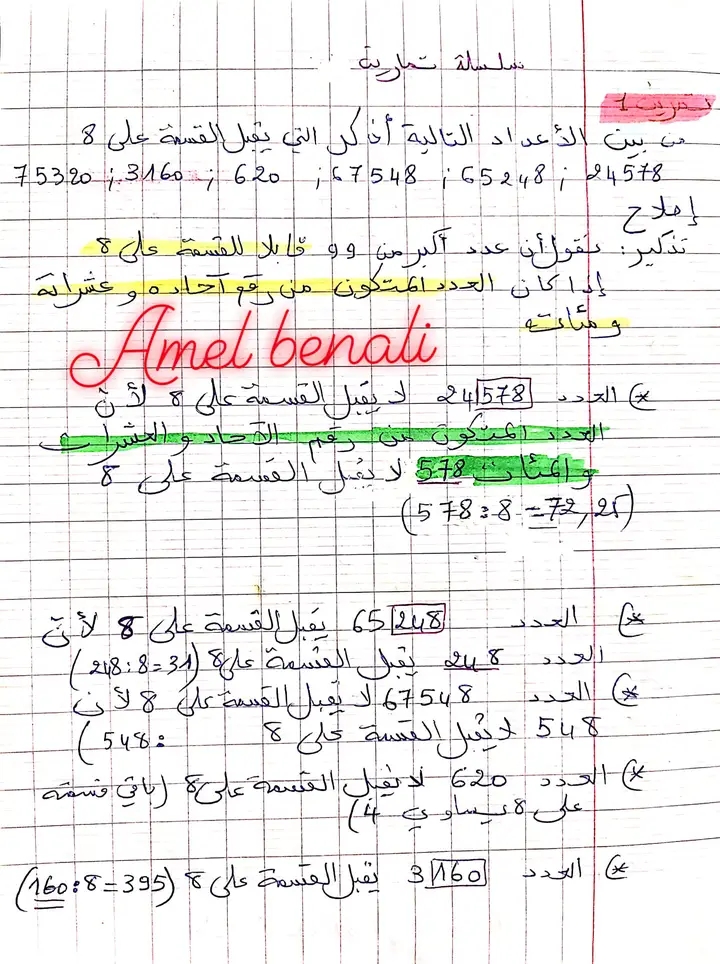 سلسلة تمارين
تمرين 1
من بين الأعداد التالية أذكر التي يقبل القسمة على 8
24578 ; 65248 ; 67548 ; 620 ; 3160 ; 75320
إصلاح
تذكير: نقول أن عدد أكبر من 99 قابلا للقسمة على 8
إذا كان العدد المتكون من رقم آحاده و عشراته
و مئاته
Amel benali
*) العدد 24578 لا يقبل القسمة على 8 لأن
العدد المتكون من رقم الآحاد و العشرات
و المئات 578 لا يقبل القسمة على 8
(578:8=72,25)
*) العدد 65248 يقبل القسمة على 8 لأن
العدد 248 يقبل القسمة على 8 (248:8=31)
*) العدد 67548 لا يقبل القسمة على 8 لأن
548 لا يقبل القسمة على 8 (548:
*) العدد 620 لا يقبل القسمة على 8 (باقي قسمة
على 8 يساوي 4)
*) العدد 3160 يقبل القسمة على 8 (160:8=395)